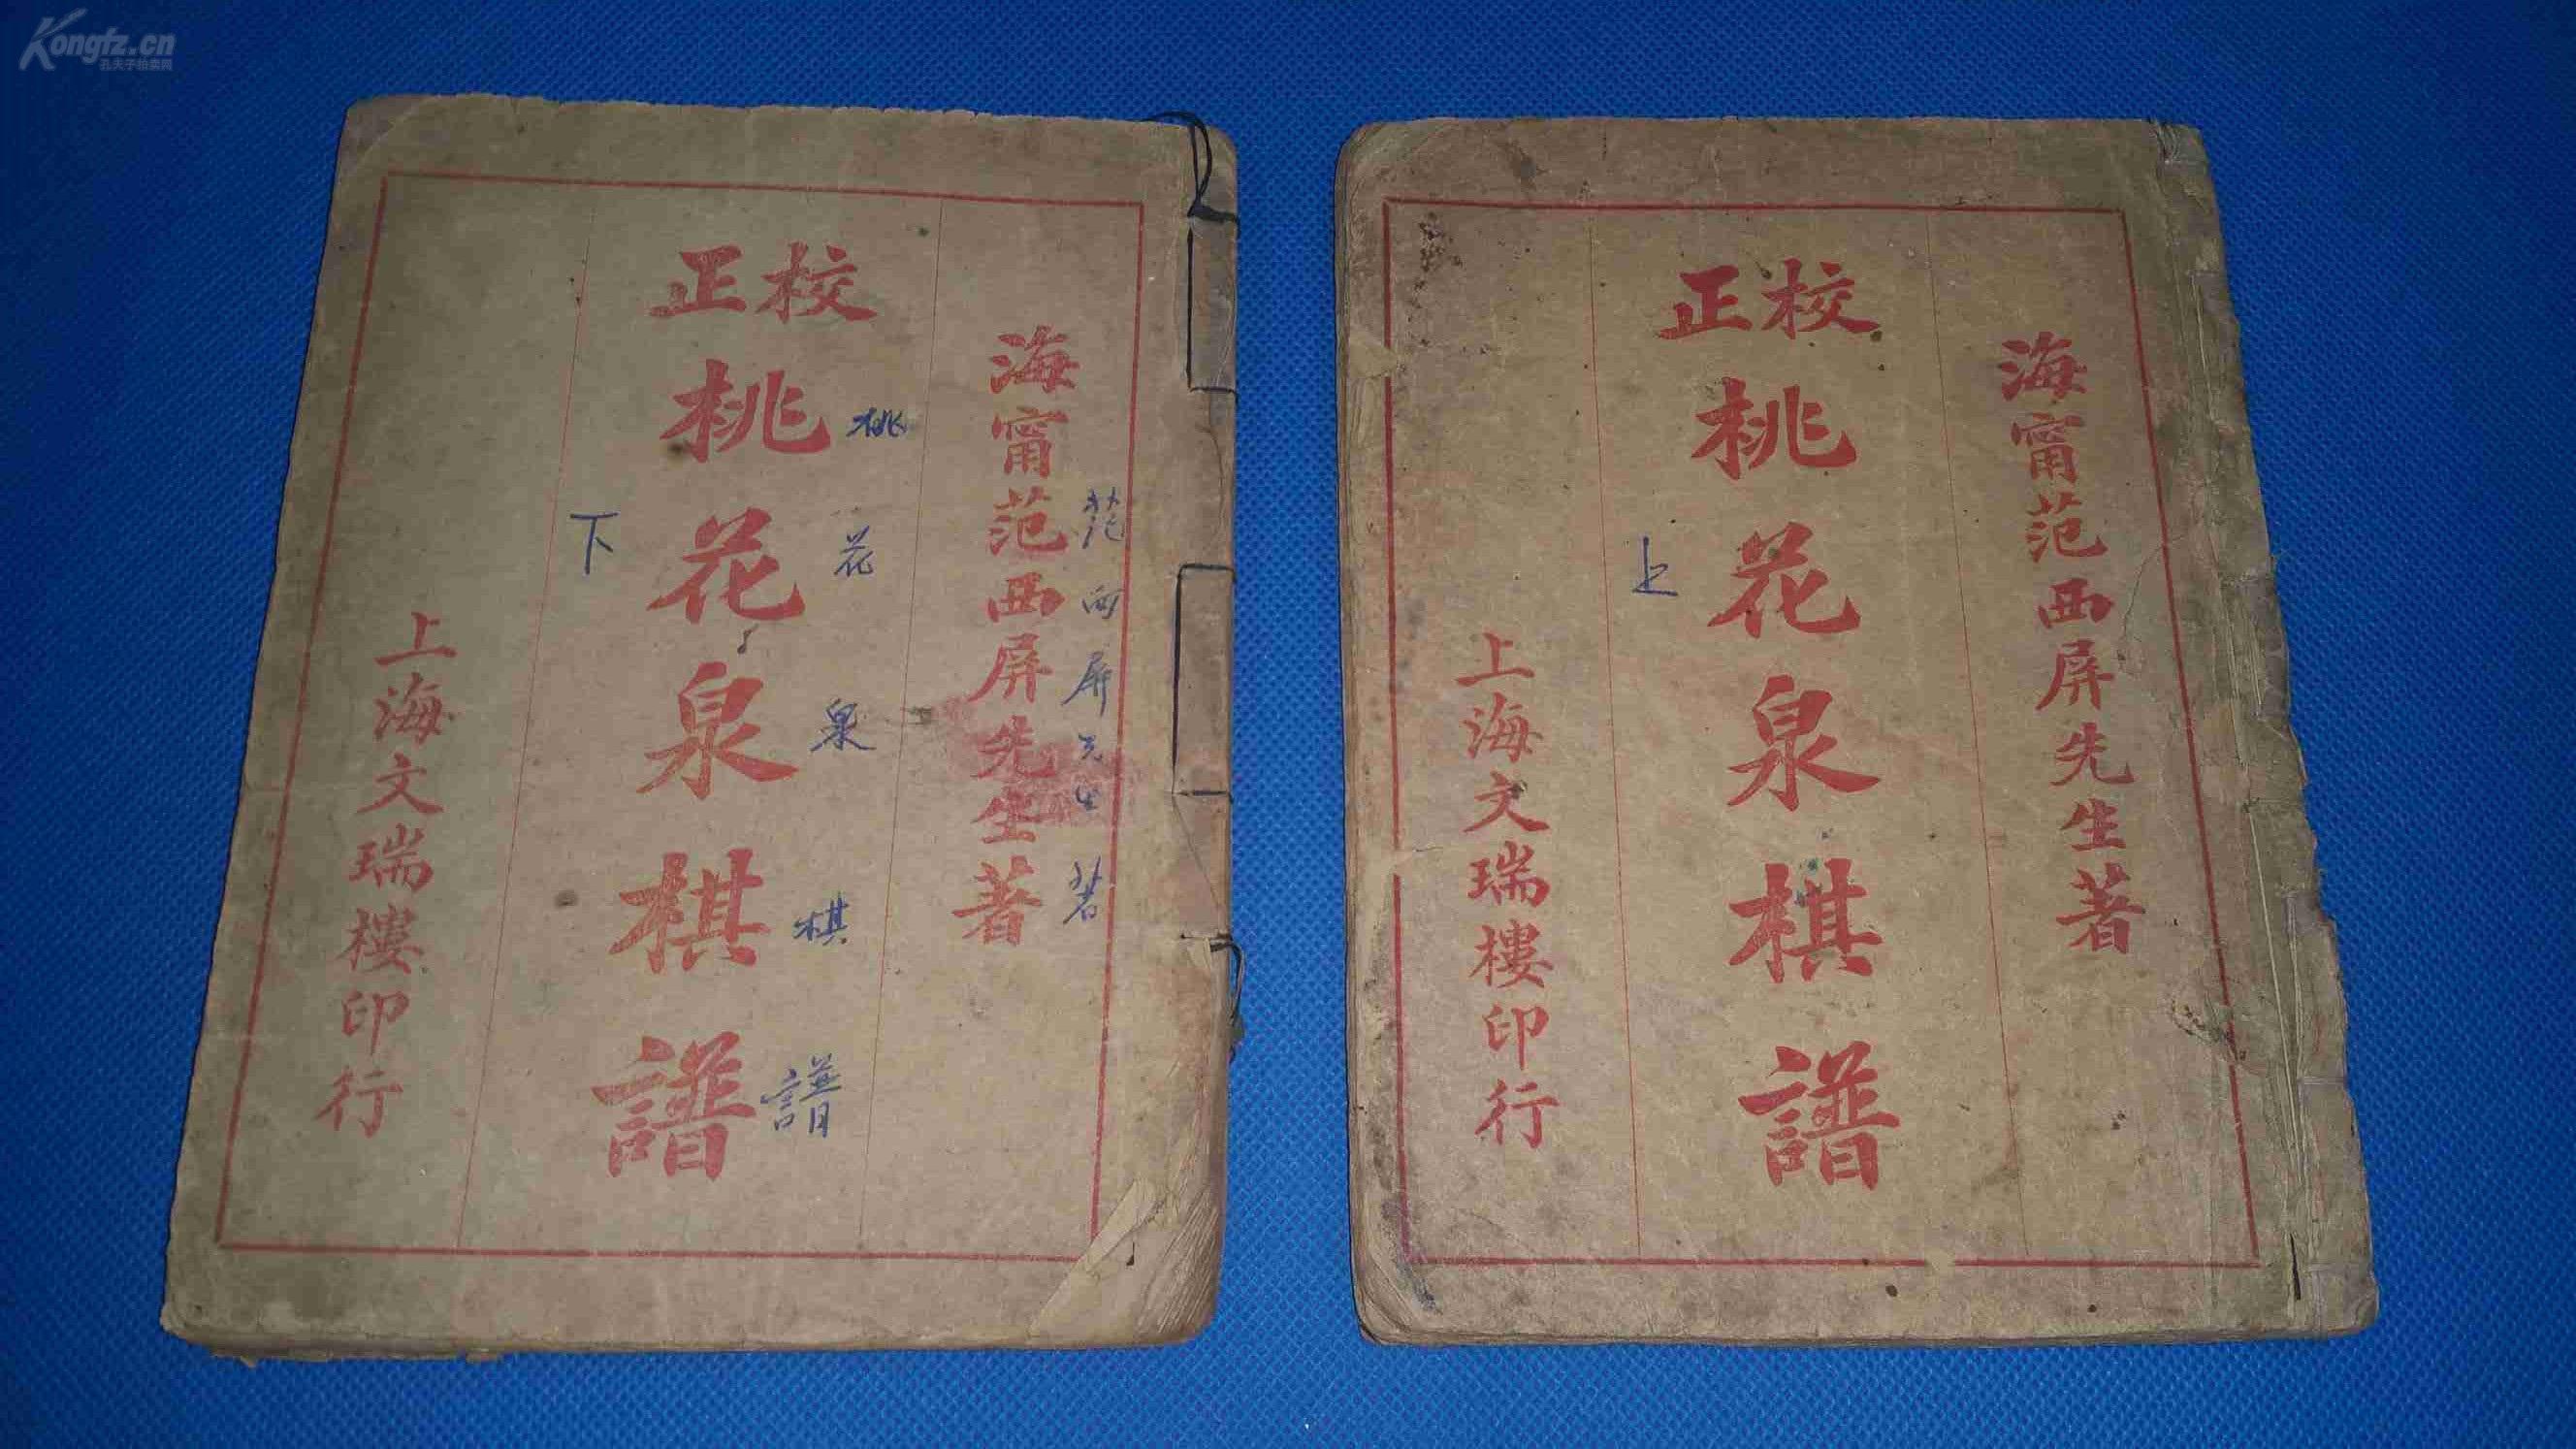 Kongfz.cn
孔夫子拍卖网
海甯范西屏先生著
范西屏先生著
校正
桃花泉棋譜
桃花泉棋譜
下
上海文瑞樓印行
海甯范西屏先生著
校正
桃花泉棋譜
上
上海文瑞樓印行